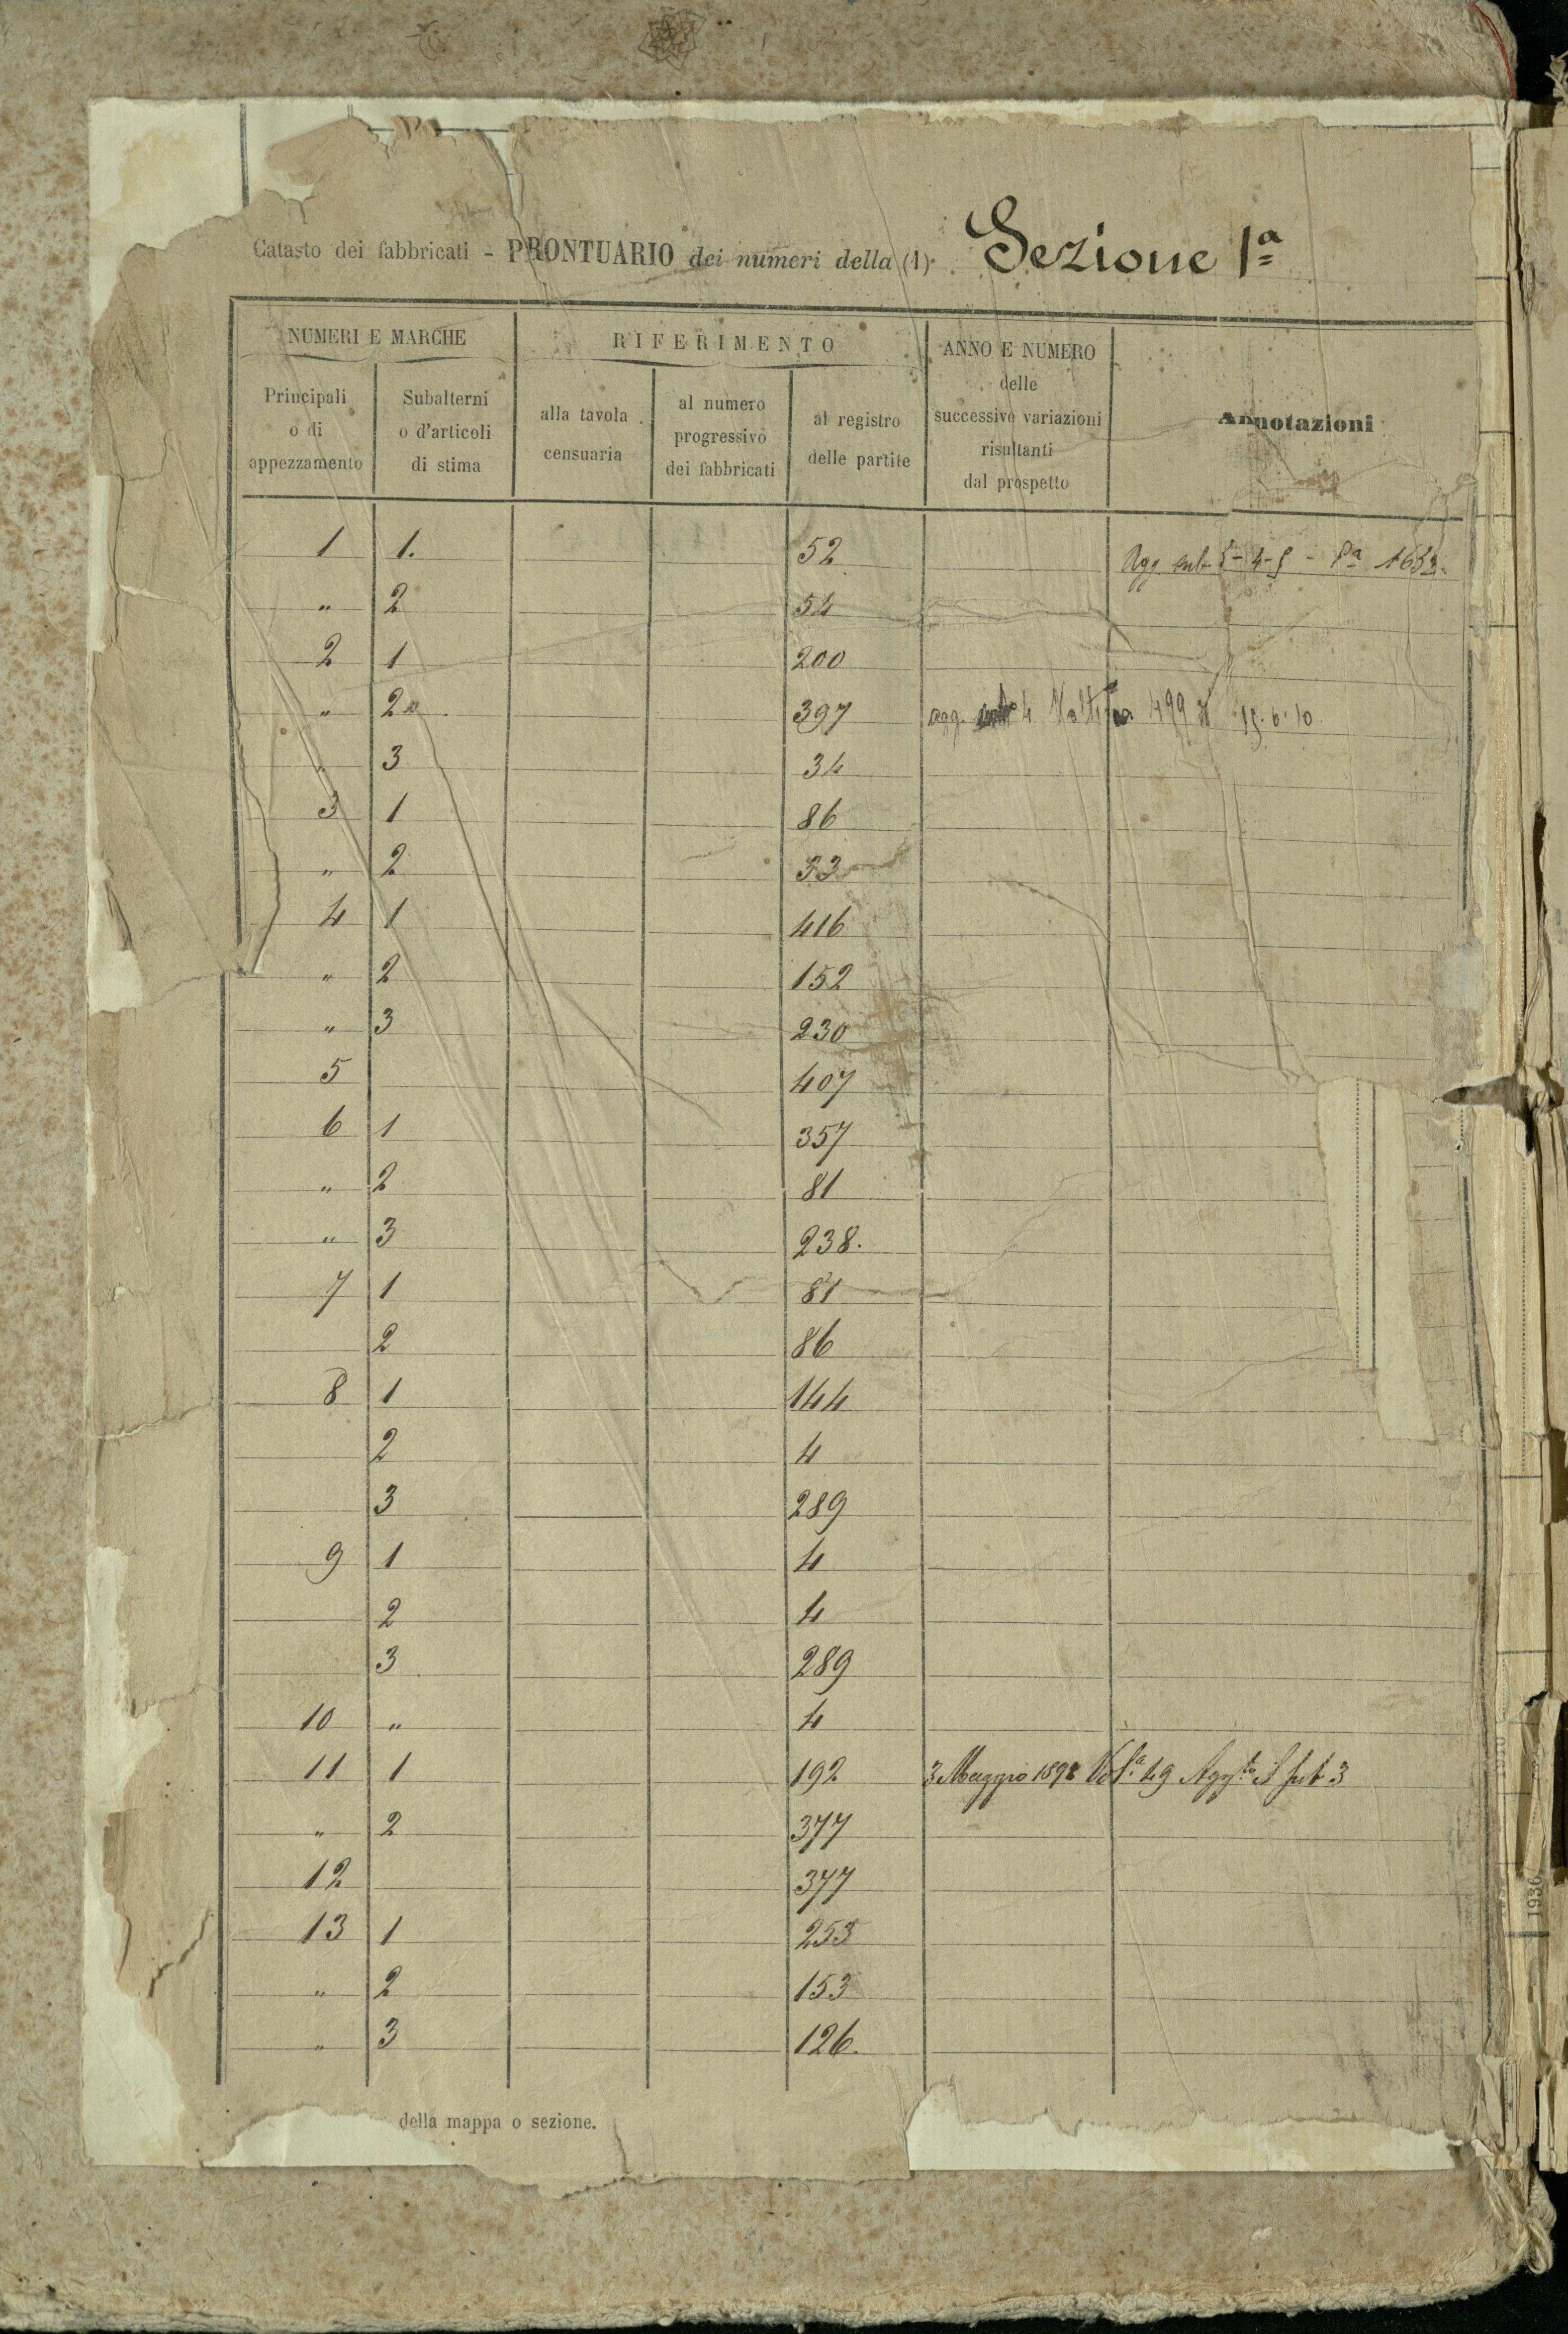 Catasto dei fabbricati - PRONTUARIO dei numeri della (1) Sezione 1ª
NUMERI E MARCHE
RIFERIMENTO
ANNO E NUMERO delle successive variazioni risultanti dal prospetto
Annotazioni
Principali o di appezzamento
Subalterni o d'articoli di stima
alla tavola censuaria
al numero progressivo dei fabbricati
al registro delle partite
1 1. 52 Agg. sub - 4 -
" 2 54
2 1 200
" 2 397 agg. 4 499 15.6.10
" 3 34
3 1 86
" 2 33
4 1 416
" 2 152
" 3 230
5 407
6 1 357
" 2 81
" 3 238.
7 1 81
2 86
8 1 144
2 4
3 289
9 1 4
2 4
3 289
10 " 4
11 1 192 3 Maggio 1898 49 sub 3
" 2 377
12 377
13 1 253
" 2 153
" 3 126.
della mappa o sezione.
1936